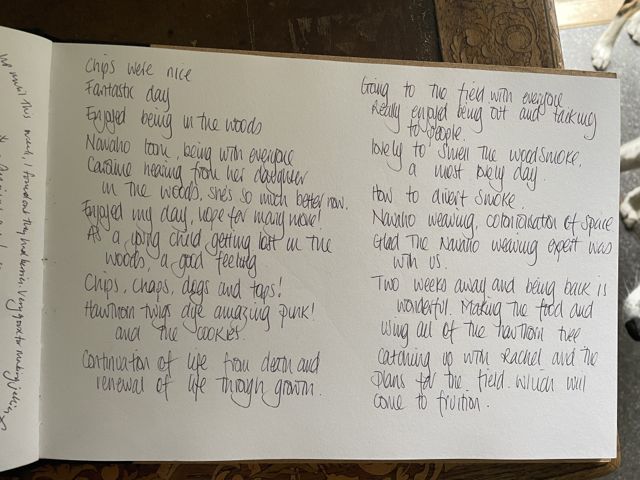 Chips were nice
Fantastic day
Enjoyed being in the woods
Navaho loom, being with everyone
Caroline hearing from her daughter
in the woods, she's so much better now.
Enjoyed my day, hope for many more!
As a young child getting lost in the
woods, a good feeling
Chips, chaps, dogs and tops!
Hawthorn twigs dye amazing pink!
and the cookies.
Continuation of life from death and
renewal of life through growth.
Going to the field with everyone
Really enjoyed being out and talking
to people.
lovely to smell the woodsmoke,
a most lovely day
How to divert smoke.
Navaho weaving, colonisation of space
Glad the Navaho weaving expert was
with us.
Two weeks away and being back is
wonderful. Making the food and
using all of the hawthorn tree
Catching up with Rachel and the
plans for the field which will
come to fruition.